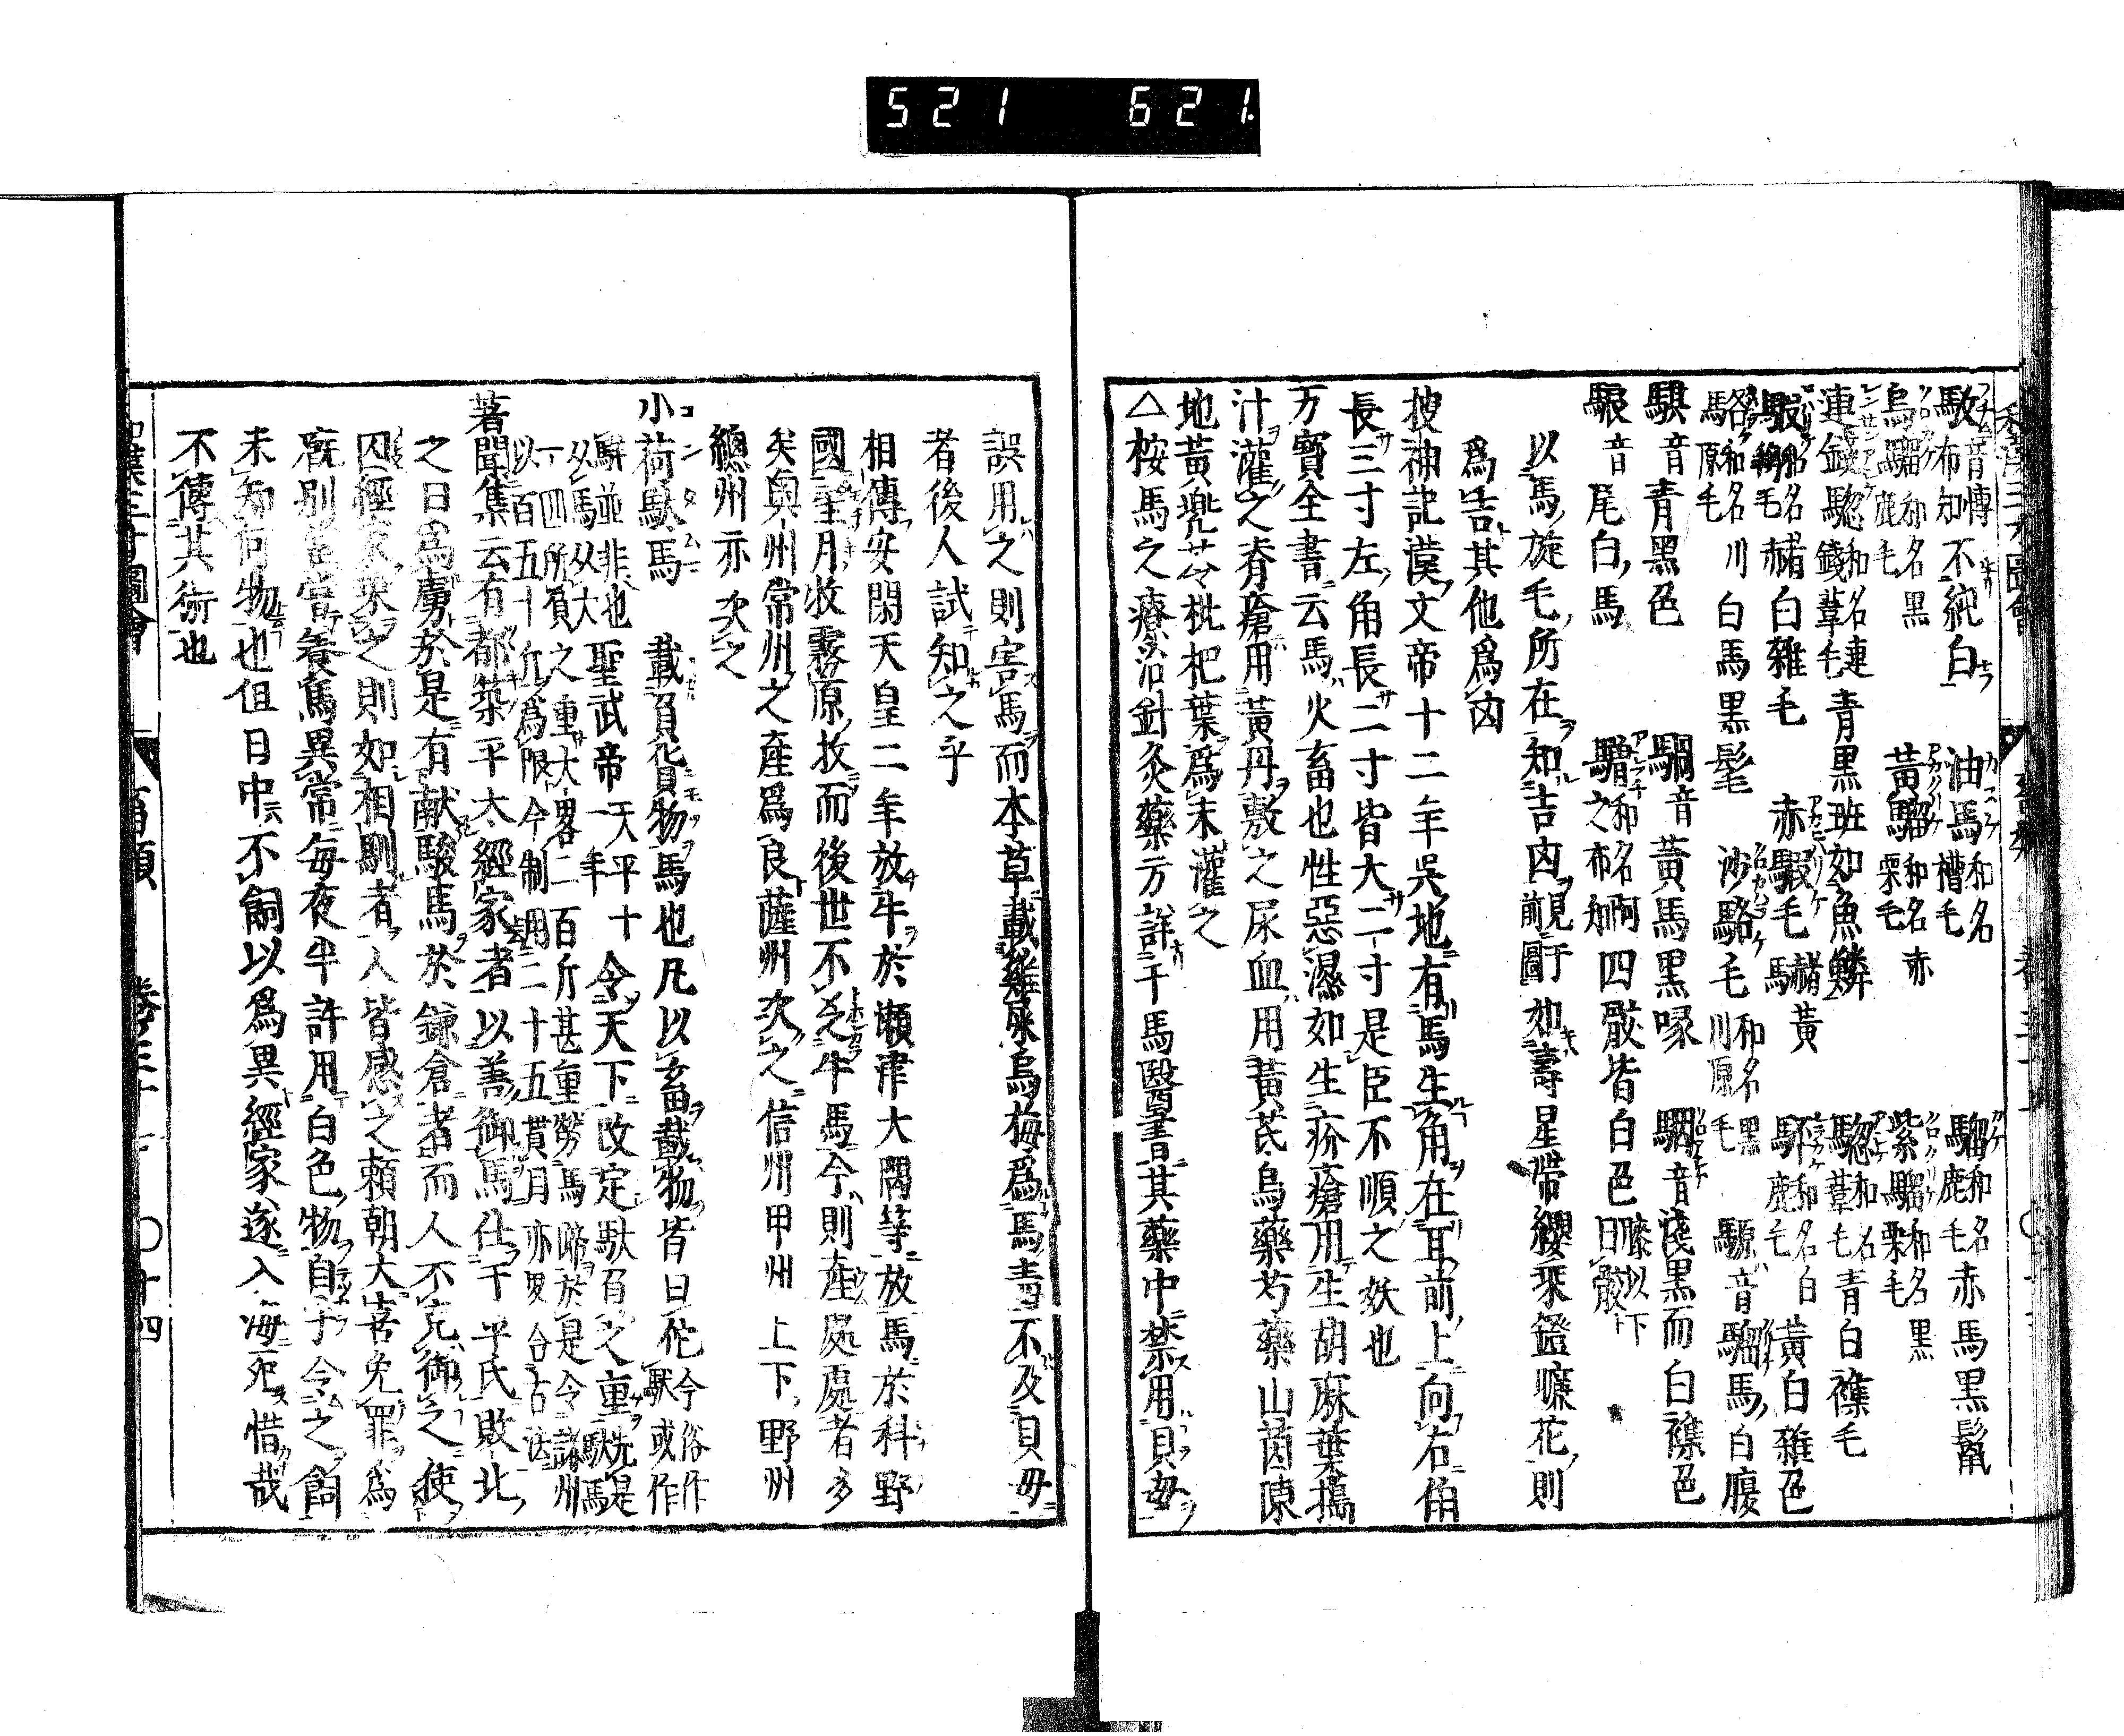 521 621.
和漢三才圖會
駁 音博 布知 不純白 油馬 和名 糟毛 騮 和名 鹿毛 赤馬黒鬣
烏騮 和名黒鹿毛 黃騮 和名赤栗毛 紫騮 和名黒栗毛
連錢驄 和名連錢葦毛 青黒班如魚鱗 驄 和名葦毛 青白襍毛
騢 赭白雜毛 赤騢毛 赭黃馬 和名白鹿毛 黃白雜色
駱 和名川原毛 白馬黒髦 沙駱毛 和名黒川原毛 騵 音 騮馬白腹
騏 音 青黒色 騧 音 黃馬黒喙 駰 音 淺黒而白襍色
駺 音 尾白馬 驓 和名阿之布知 四骹皆白色 膝以下曰骹
以馬旋毛所在知吉凶 見于前圖 如壽星帶纓乘鐙㾾花則
爲吉其他爲凶
搜神記漢文帝十二年吳地有馬生角在耳前上向右角
長三寸左角長二寸皆大二寸是臣不順之妖也
万寶全書云馬火畜也性惡濕如生疥瘡用生胡麻葉搗
汁灌之脊瘡用黃丹敷之尿血用黃芪烏藥芍藥山茵陳
地黃兠苓枇杷葉爲末灌之
△桉馬之療治針灸藥方詳于馬醫書其藥中禁用貝母
誤用之則害馬而本草載雞尿烏梅爲馬毒不及貝毋
者後人試知之乎
相傳安閑天皇二年放牛於瀨津大隅等放馬於科野
國望月牧霧原牧而後世不乏牛馬今則產處處者多
矣奥州常州之產爲良薩州次之信州甲州上下野州
總州亦次之
小荷駄馬 載負貨物馬也凡以畜載物皆曰佗 今俗作駄或作
觧並非也从馬从大 聖武帝 天平十一年 令天下改定駄負之重 先是駄馬
一匹所負之重大畧二百斤甚重勞馬蹄於是令諸州
以百五十斤爲限今制用二十五貫目亦畧合古法
著聞集云有都築平太經家者以善御馬仕于平氏敗北
之日爲虜於是有献駿馬於鎌倉者而人不克御之使
囚經家乘之則如相馴者人皆感之頼朝大喜免罪爲
厩別當當養馬異常毎夜半許用白色物自予令之飼
未知何物也但日中不飼以爲異經家遂入海死惜哉
不傳其術也
畜類 卷三十七 〇十四